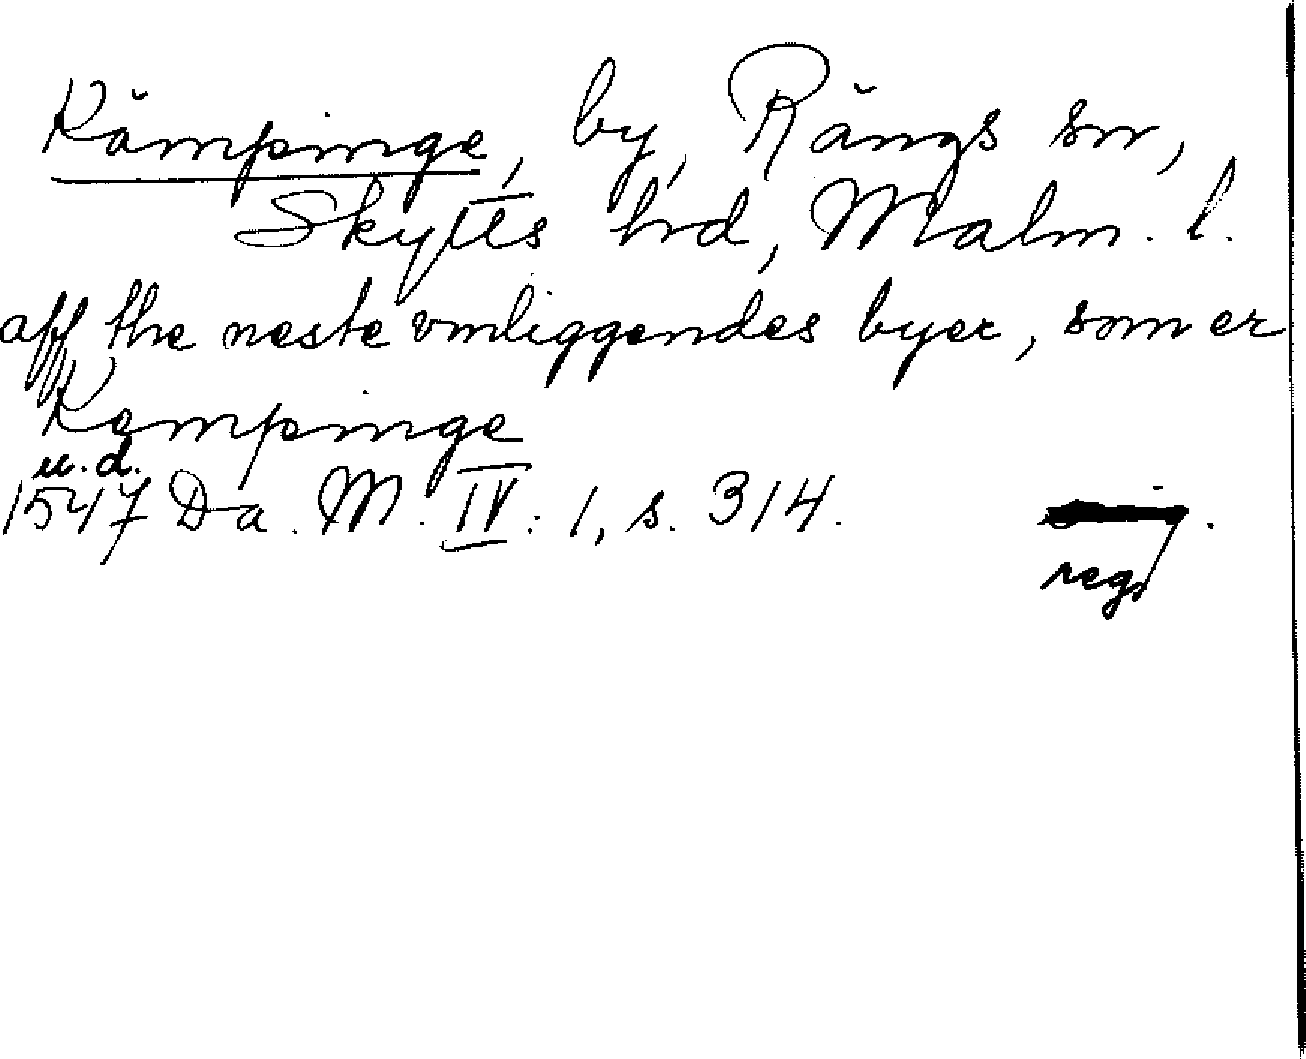 Kämpinge, by, Rängs sn,
Skytts hd, Malm. l.
aff the neste vmliggendes byer, som er
Kempinge
u.d.
1547 Da. M. IV: 1, s. 314.
reg.